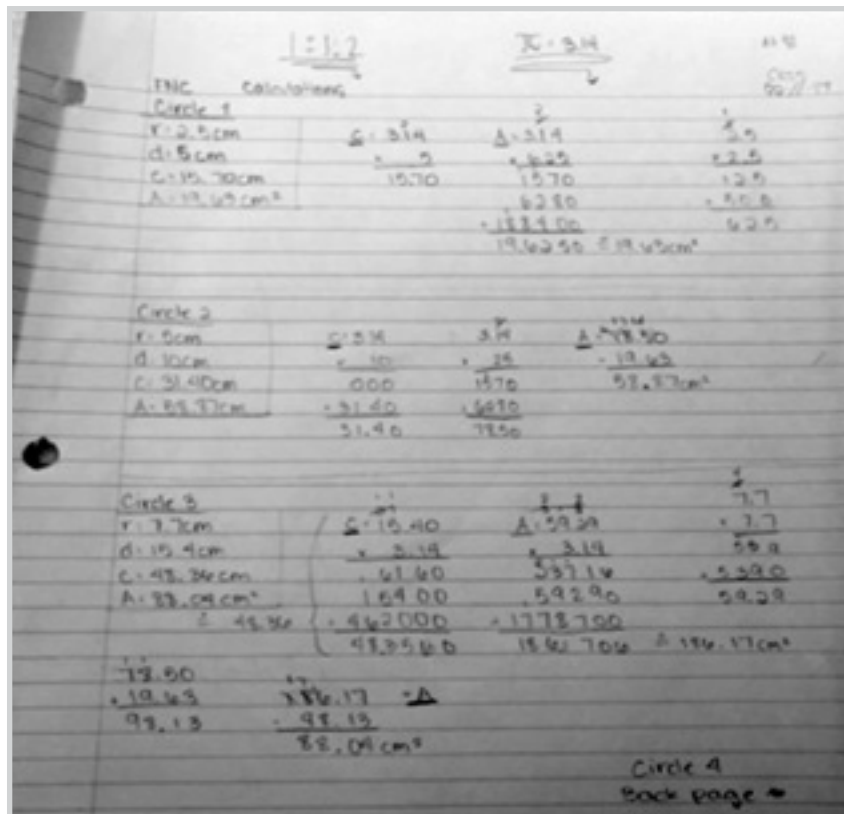 1:1.2 π = 3.14
Calculations
Circle 1
r = 2.5cm
d = 5cm
C = 15.70cm
A = 19.63cm²
C = 3.14
× 5
15.70
A = 3.14
× 625
1570
6280
+ 188400
19.6250 ≈ 19.63cm²
2.5
× 2.5
125
+ 500
625
Circle 2
r = 5cm
d = 10cm
C = 31.40cm
A = 58.87cm
C = 3.14
× 10
000
+ 31.40
31.40
3.14
× 25
1570
+ 6280
7850
A = 78.50
- 19.63
58.87cm²
Circle 3
r = 7.7cm
d = 15.4cm
C = 48.36cm
A = 88.04cm²
≈ 48.36
C = 15.40
× 3.14
6160
15400
+ 462000
483560
A = 59.29
× 3.14
23716
59290
+ 1778700
1861706 ≈ 186.17cm²
7.7
× 7.7
539
+ 5390
59.29
78.50
+ 19.63
98.13
186.17 = A
- 98.13
88.04 cm²
Circle 4
Back page